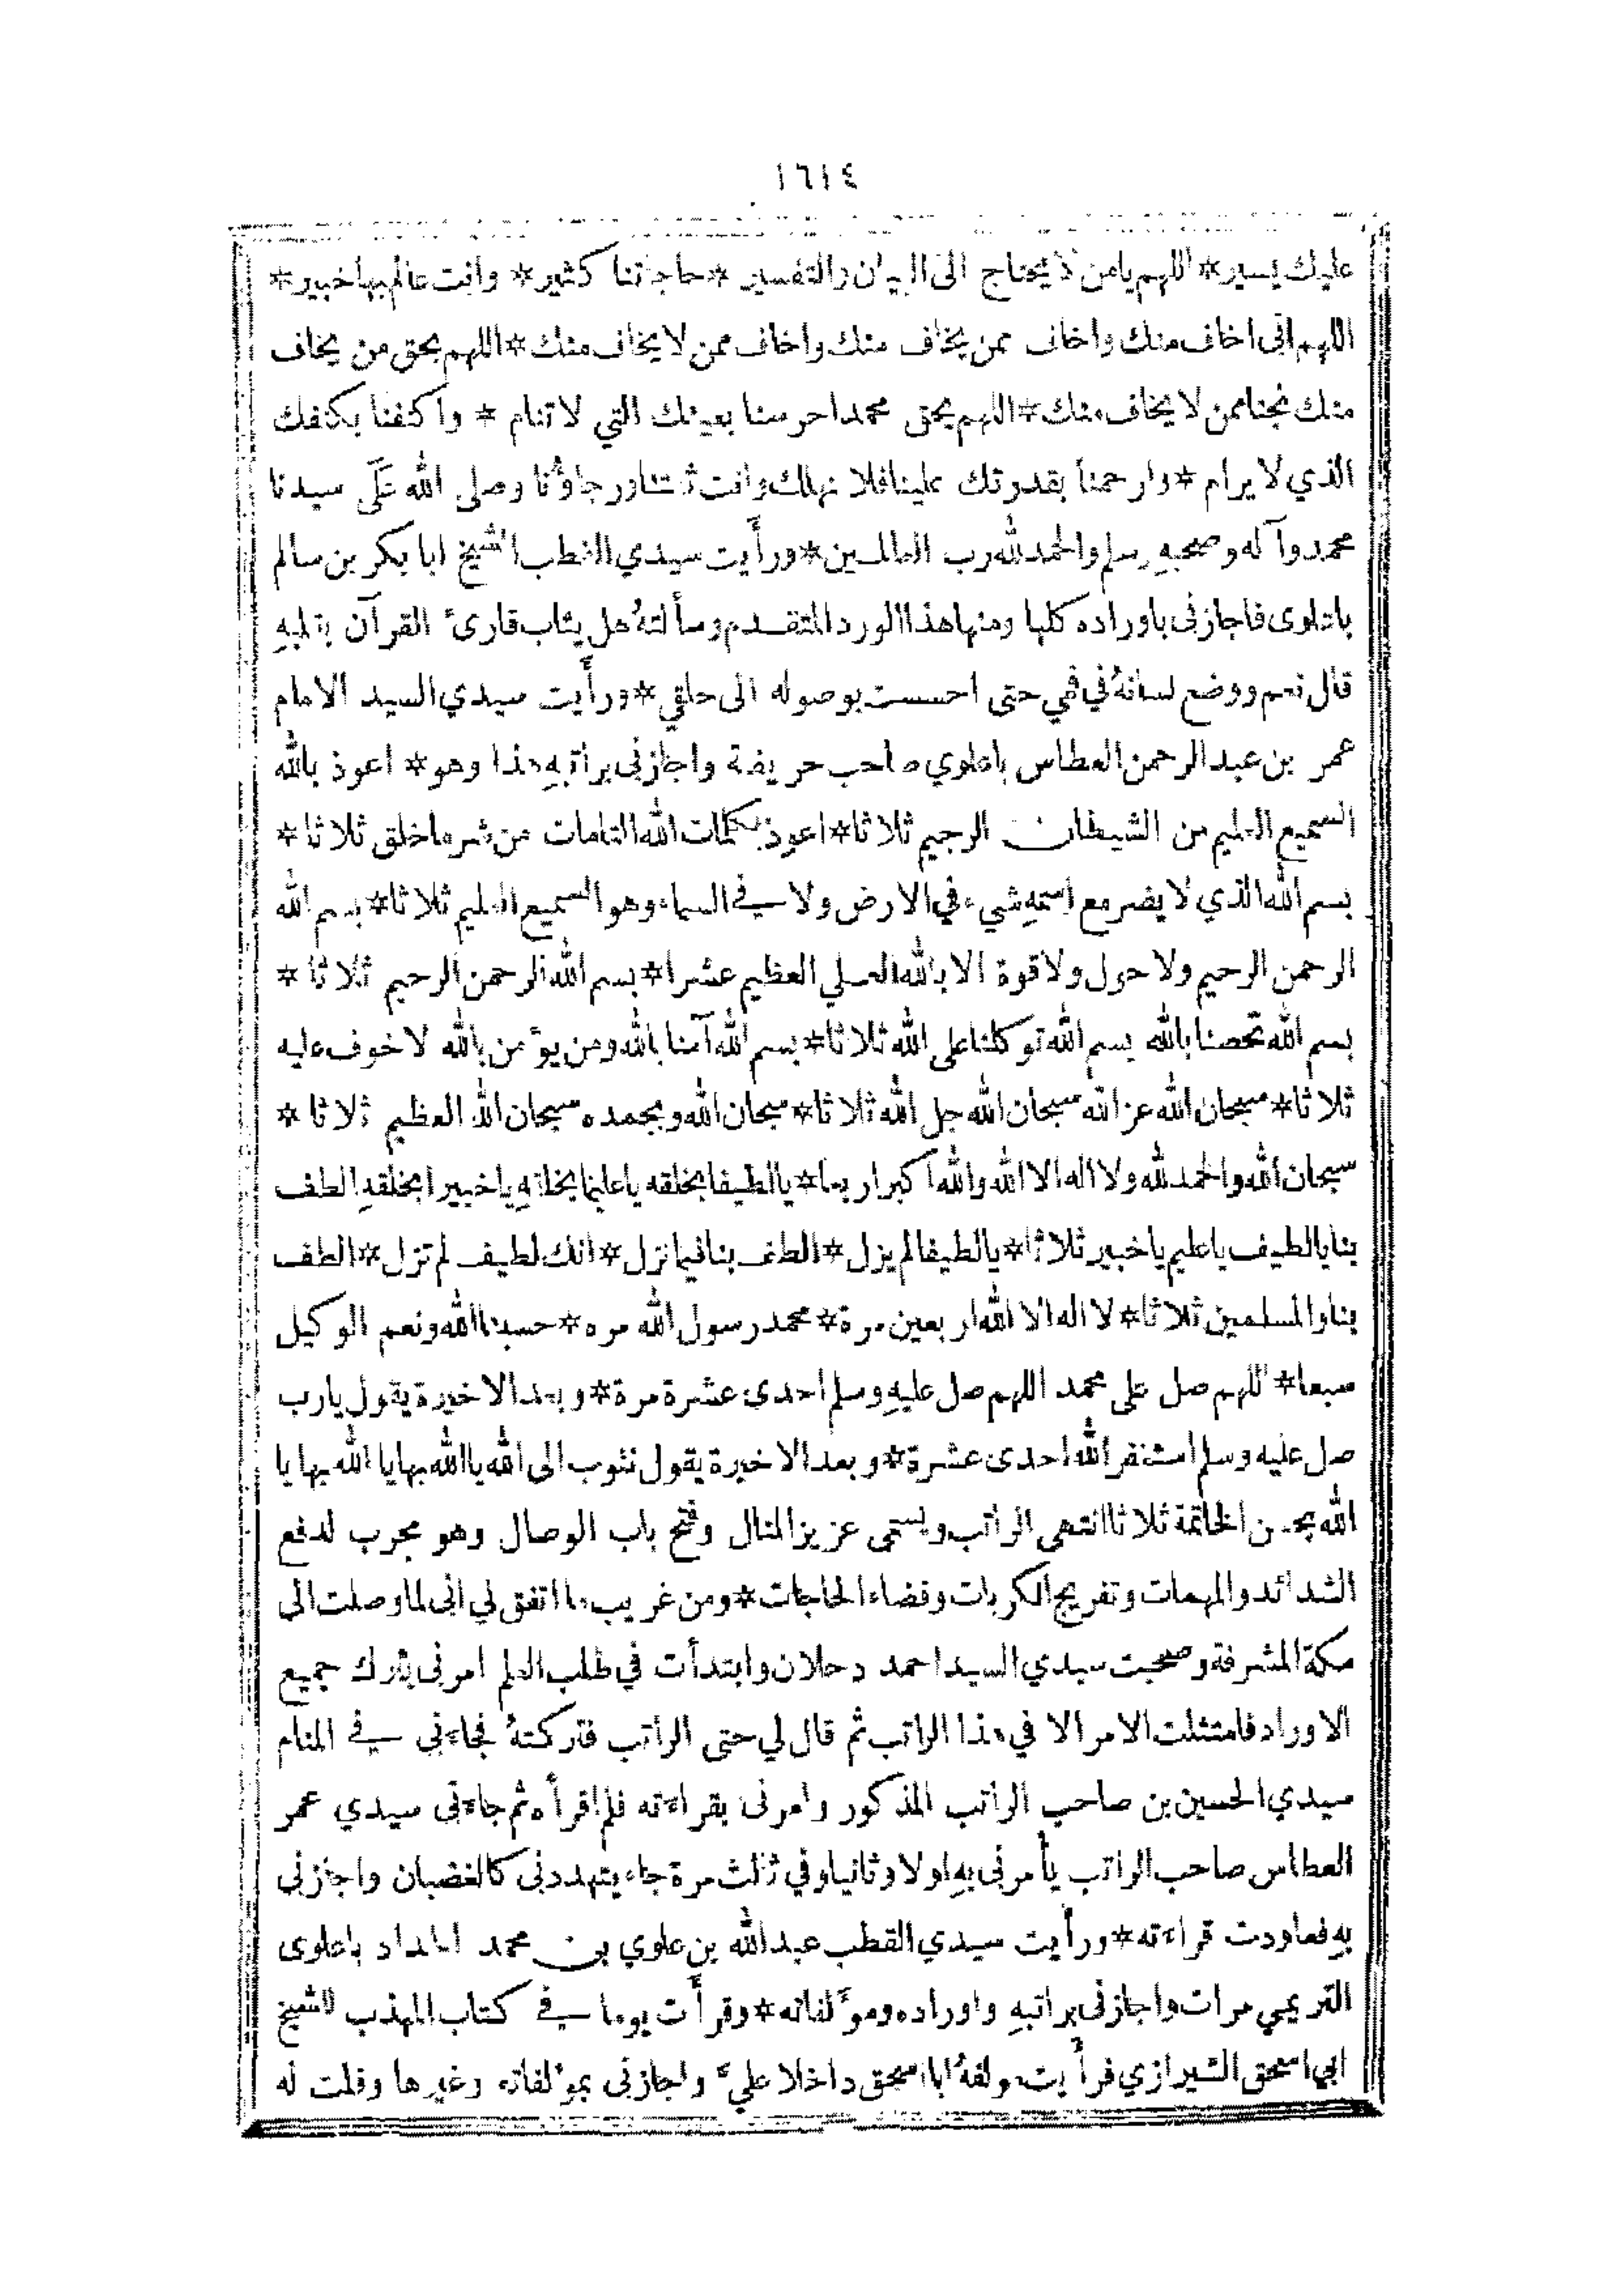 ١٦١٤
عليك يسير* اللهم يا من لا يحتاج الى البيان والتفسير *حاجاتنا كثير* وانت عالم بها خبير*
اللهم انى اخاف منك واخاف ممن يخاف منك واخاف ممن لا يخاف منك* اللهم بحق من يخاف
منك نجنا ممن لا يخاف منك* اللهم بحق محمد احرسنا بعينك التي لا تنام * واكنفنا بكنفك
الذي لا يرام *وارحمنا بقدرتك علينا فلا نهلك وانت ثقتنا ورجاؤنا وصلى الله على سيدنا
محمد وآله وصحبهِ وسلم والحمد لله رب العالمين* ورأيت سيدي القطب الشيخ ابا بكر بن سالم
باعلوى فاجازنى باوراده كلها ومنها هذا الورد المتقدم وسألتهُ هل يثاب قارئ القرآن بقلبهِ
قال نعم ووضع لسانهُ في فمي حتى احسست بوصوله الى حلقي *ورأيت سيدي السيد الامام
عمر بن عبد الرحمن العطاس باعلوي صاحب حريضة واجازنى براتبهِ هذا وهو* اعوذ بالله
السميع العليم من الشيطان الرجيم ثلاثا* اعوذ بكلمات الله التامات من شر ما خلق ثلاثا*
بسم الله الذي لا يضر مع اسمهِ شيء في الارض ولا في السماء وهو السميع العليم ثلاثا* بسم الله
الرحمن الرحيم ولا حول ولا قوة الا بالله العلي العظيم عشرا* بسم الله الرحمن الرحيم ثلاثا *
بسم الله تحصنا بالله بسم الله توكلنا على الله ثلاثا* بسم الله آمنا بالله ومن يؤمن بالله لا خوف عليه
ثلاثا* سبحان الله عز الله سبحان الله جل الله ثلاثا* سبحان الله وبحمده سبحان الله العظيم ثلاثا *
سبحان الله والحمد لله ولا اله الا الله والله اكبر اربعا* يا لطيفا بخلقه يا عليما بخلقهِ يا خبيرا بخلقهِ الطف
بنا يا لطيف يا عليم يا خبير ثلاثا* يا لطيفا لم يزل* الطف بنا فيما نزل* انك لطيف لم تزل* الطف
بنا والمسلمين ثلاثا* لا اله الا الله اربعين مرة* محمد رسول الله مره* حسبنا الله ونعم الوكيل
سبعا* اللهم صل على محمد اللهم صل عليهِ وسلم احدى عشرة مرة* وبعد الاخيرة يقول يا رب
صل عليه وسلم استغفر الله احدى عشرة* وبعد الاخيرة يقول نتوب الى الله يا الله بها يا الله بها يا
الله بحسن الخاتمة ثلاثا انتهى الراتب ويسمى عزيز المنال وفتح باب الوصال وهو مجرب لدفع
الشدائد والمهمات وتفريج الكربات وقضاء الحاجات* ومن غريب ما اتفق لي انى لما وصلت الى
مكة المشرفة وصحبت سيدي السيد احمد دحلان وابتدأت في طلب العلم امرنى بترك جميع
الاوراد فامتثلت الامر الا في هذا الراتب ثم قال لي حتى الراتب فتركتهُ فجاءنى في المنام
سيدي الحسين بن صاحب الراتب المذكور وامرنى بقراءته فلم اقرأه ثم جاءنى سيدي عمر
العطاس صاحب الراتب يأمرنى بهِ اولا وثانيا وفي ثالث مرة جاء يتهددنى كالغضبان واجازنى
بهِ فعاودت قراءته* ورأيت سيدي القطب عبد الله بن علوي بن محمد الحداد باعلوى
التريمي مرات واجازنى براتبهِ واوراده ومؤلفاته* وقرأت يوما في كتاب المهذب للشيخ
ابي اسحق الشيرازي فرأيت مؤلفهُ ابا اسحق داخلا عليّ واجازنى بمؤلفاته وغيرها وقلت له